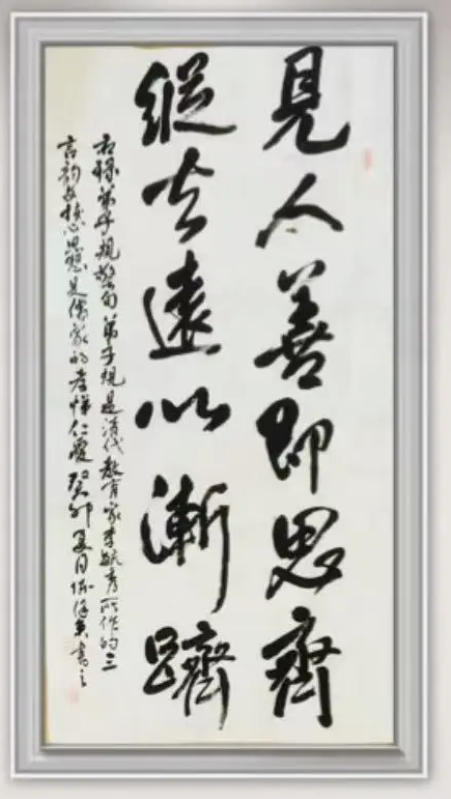 見人善即思齊
縱去遠以漸躋
右録弟子規警句弟子規是清代教育家李毓秀所作的三
言韵文核心思想是儒家的孝悌仁愛癸卯夏月書之